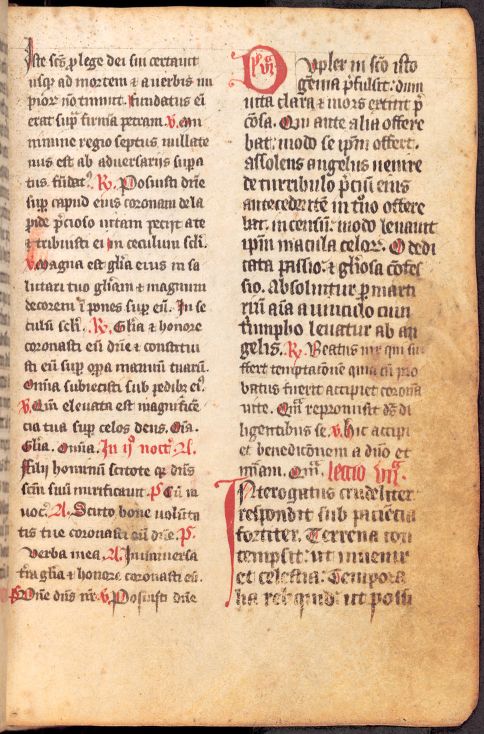 Iste scs p lege dei sui certavit
usq ad mortem et a verbis im
pior no timuit. fundatus eni
erat supra firma petram. V. Cui
nus est ab adversariis supa
tus. fūdat9. R. Posuisti dne
sup capud eius coronam de la
pide pcioso vitam peciit a te
et tribuisti ei in seculum scli.
V. Magna est glia eius in sa
lutari tuo gliam et magnum
decorem i pones sup eu. In se
culu scli. R. Glia et honore
coronasti eu dne et constitui
sti eu sup opa manuu tuaru.
Omia subiecisti sub pedib ei9.
V. Qm elevata est magnificē
cia tua sup celos deus. Oia.
Glia. Omia. In iio noct. A.
Filii hominu scitote q dns
scm suu mirificavit. P. Cu in
voc. A. Scuto bone volūta
tis tue coronasti eu dne. P.
Verba mea. A. In universa
tra glia et honore coronasti eu.
P. Dne dns nr. V. Posuisti dne
in sco isto
genia pfulsit: dum
vita clara et mors extitit p
ciosa. Qui ante alia offere
bat: modo se ipm offert.
assolens angelus venire
de turribulo pciu eius
antecedete in tuo offere
bat incensu: modo levavit
ipm macula celor. O dedi
cata passio: et gliosa cōfes
sio. Absolvitur p marti
riu aia a vinculo cum
triumpho levatur ab an
gelis. R. Beatus vir qui su
ffert temptacōnem qm cu pro
batus fuerit accipiet corona
vite. Qm repromisit ds di
ligentibus se. V. Hic accipi
et benedictōnem a dno et
miam. Qm. lectio viia.
Interogatus crudeliter
respondit sub paciecia
fortiter. Terrena con
tempsit: ut inveniret
et celestia: Tempora
lia reliquid: ut possi